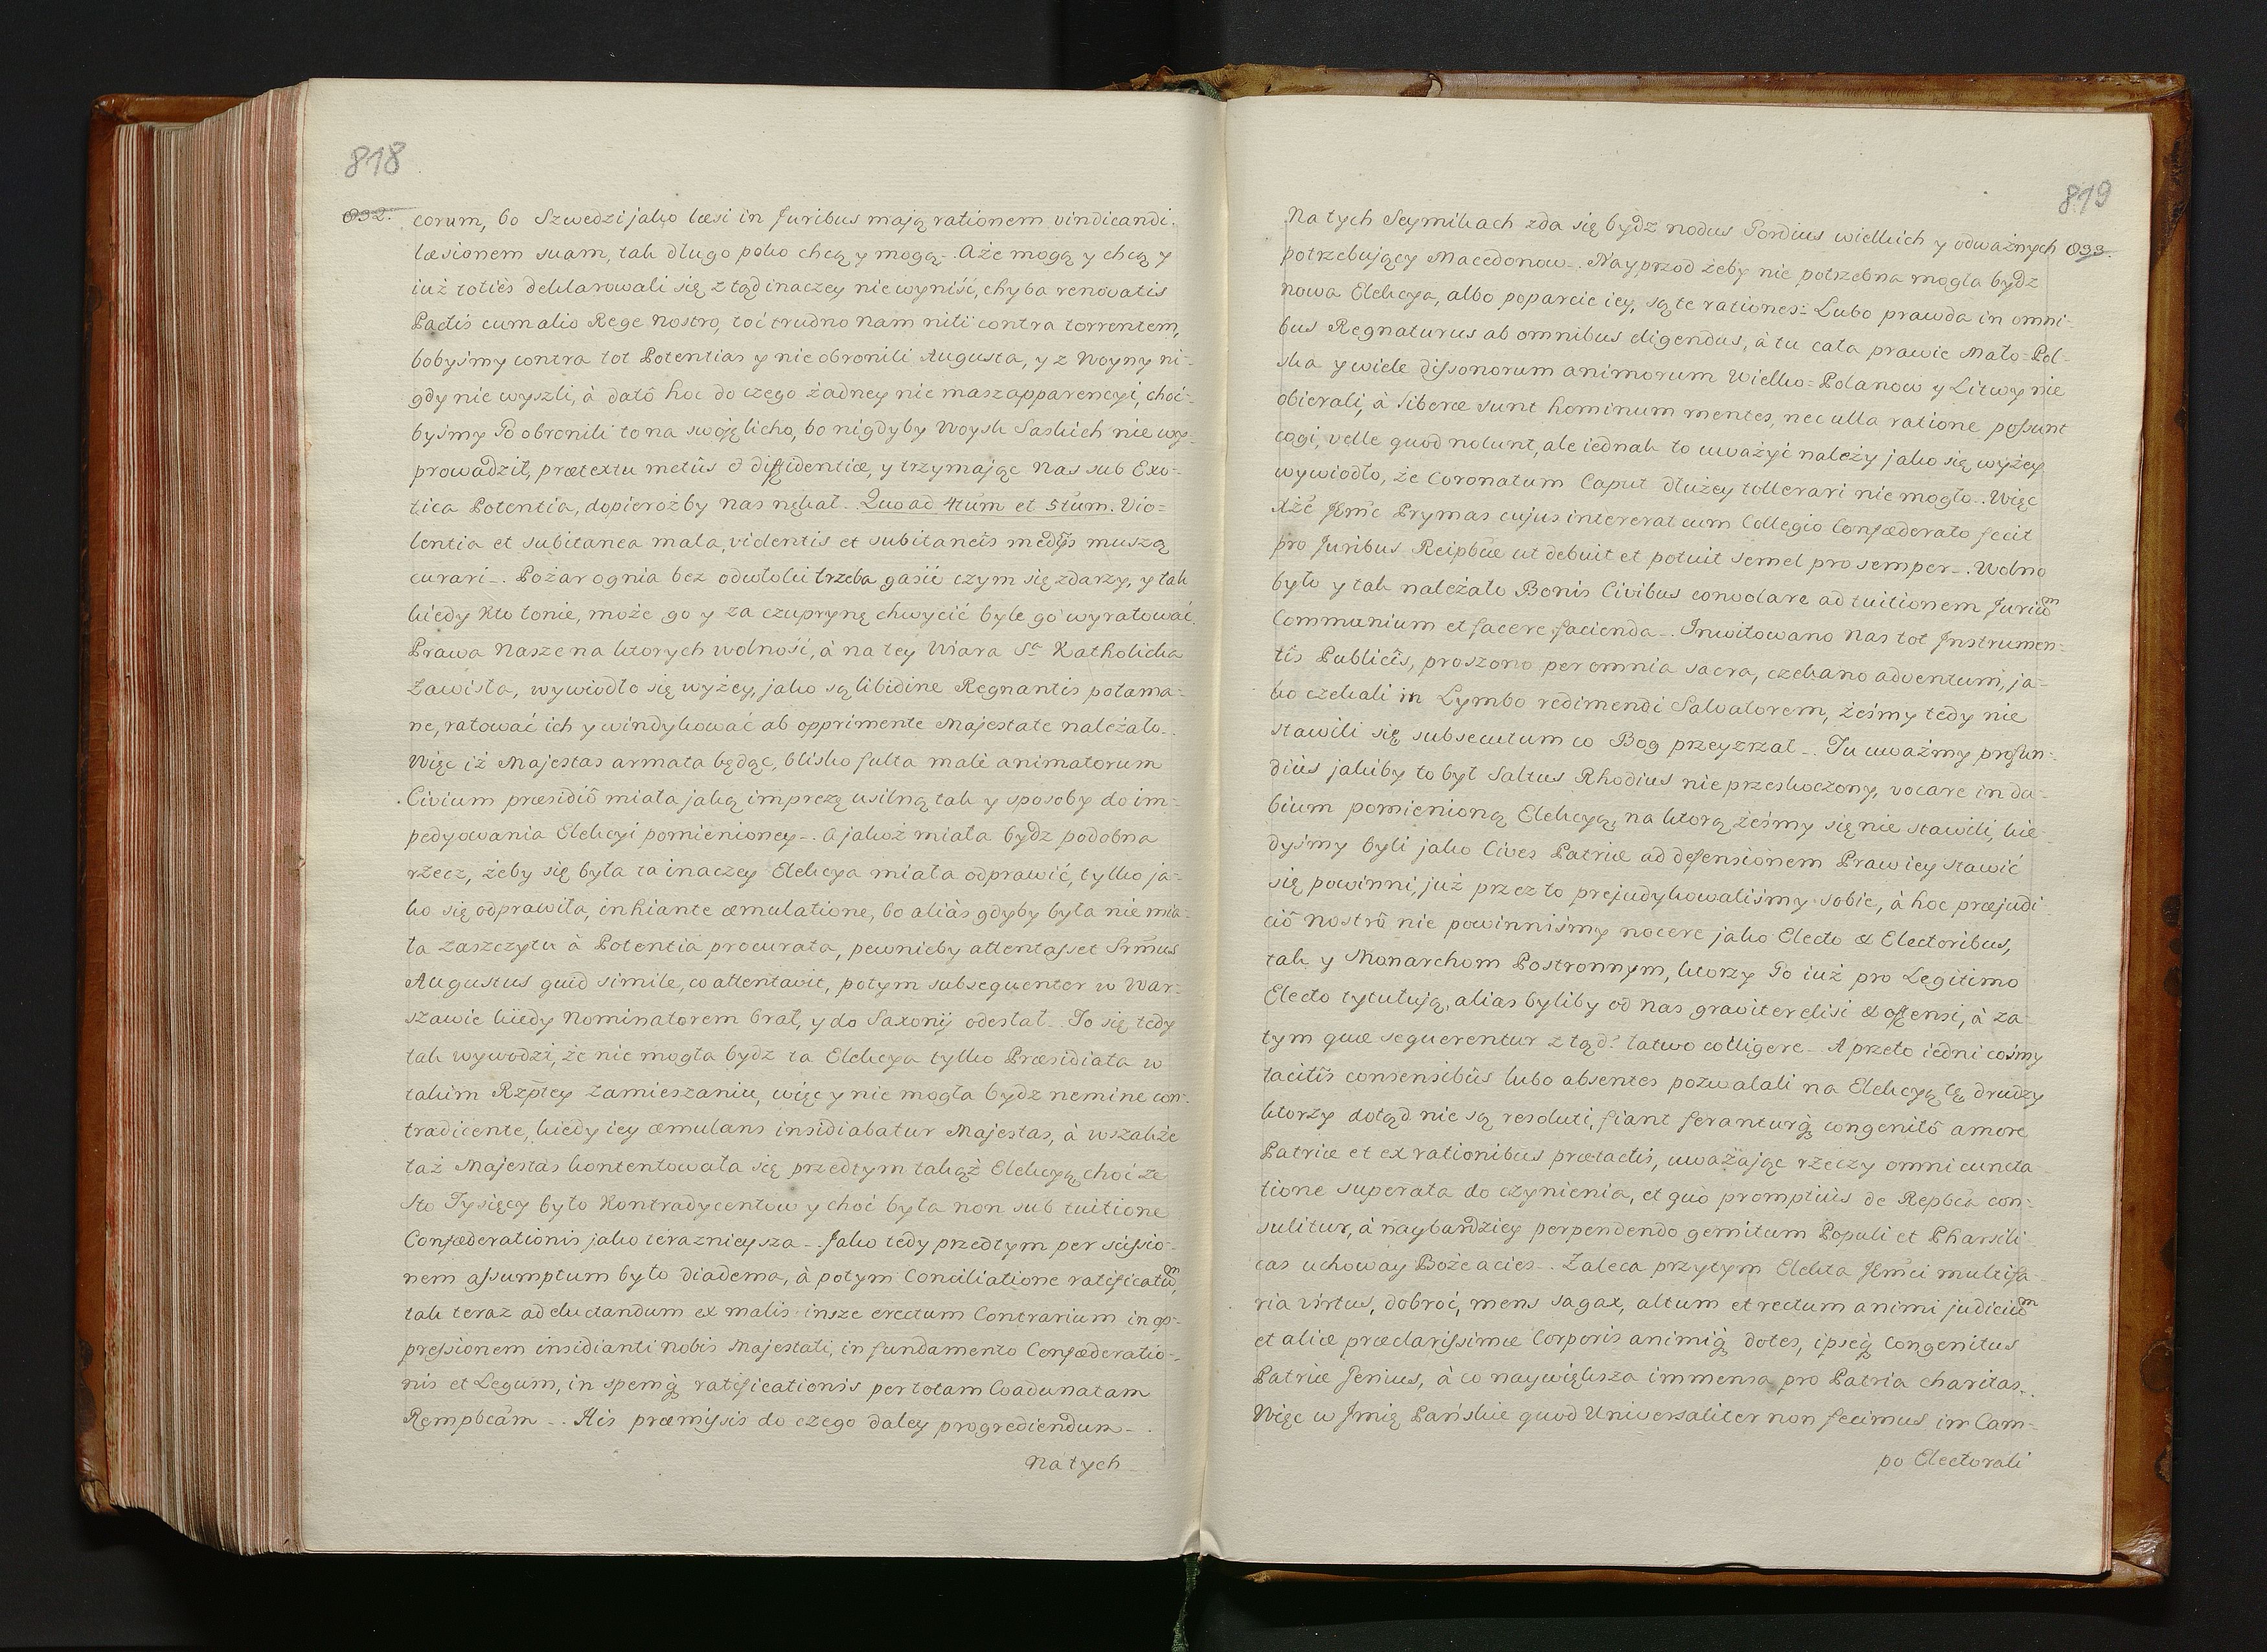 818
832.
corum, bo Szwedzi jako læsi in Juribus mają rationem vindicandi
læsionem suam, tak długo poko chcą y mogą. Aże mogą y chcą y
iuż toties deklarowali się ztąd inaczey nie wyniść, chyba renovatis
Pactis cum alio Rege Nostro, toć trudno nam niti contra torrentem,
bobyśmy contra tot Potentias y nie obronili Augusta, y z Woyny ni-
gdy nie wyszli, à datô hoc do czego żadney nie masz apparencyi, choć-
byśmy Go obronili to na swoję licho, bo nigdyby Woysk Saskich nie wy-
prowadził, prætextu metûs & diffidentiæ, y trzymając Nas sub Exo-
tica Potentia, dopierożby nas nękał. Quo ad 4tum et 5tum. Vio=
lentia et subitanea mala, violentis et subitaneis medijs muszą
curari. Pożar ognia bez odwłoki trzeba gasić czym się zdarzy, y tak
kiedy Kto tonie, może go y za czuprynę chwycić byle go wyratować.
Prawa Nasze na ktorych wolność, à na tey Wiara Sta Katholicka
zawisła, wywiodło się wyżey, jako są libidine Regnantis połama-
ne, ratować ich y windykować ab opprimente Majestate należało.
Więc iż Majestas armata będąc, blisko fulta malè animatorum
Civium præsidiô miała jaką imprezę usilną tak y sposoby do im-
pedyowania Elekcyi pomienioney. A jakoż miała bydz podobna
rzecz, żeby się była ta inaczey Elekcya miała odprawić, tylko ja-
ko się odprawiła, inhiante æmulatione, bo aliàs gdyby była nie mia-
ła zaszczytu à Potentia procurata, pewnieby attentasset Srm̃us
Augustus quid simile, co attentavit, potym subsequenter w War-
szawie kiedy Nominatorem brał, y do Saxonij odesłał. To się tedy
tak wywodzi, że nie mogła bydz ta Elekcya tylko Præsidiata w
takim Rzptey zamieszaniu, więc y nie mogła bydz nemine con-
tradicente, kiedy iey æmulans insidiabatur Majestas, à wszakże
taż Majestas kontentowała się przedtym takąż Elekcyą, choć ze
sto Tysięcy było Kontradycentow y choć była non sub tuitione
Confæderationis jako teraznieysza. Jako tedy przedtym per scissio-
nem assumptum było diadema, à potym Conciliatione ratificatum,
tak teraz ad eluctandum ex malis insze erectum Contrarium in op-
pressionem insidianti nobis Majestati, in fundamento Confæderatio-
nis et Legum, in spemq̃ ratificationis per totam Coadunatam
Rempbcam. His præmissis do czego daley progrediendum.
Na tych
819
833.
Na tych Seymikach zda się bydz nodus Gordius wielkich y odważnych
potrzebujący Macedonow. Nayprzod żeby nie potrzebna mogła bydz
nowa Elekcya, albo poparcie iey, są te rationes: Lubo prawda in omni-
bus Regnaturus ab omnibus eligendus, à tu cała prawie Mało=Pol-
ska y wiele dissonorum animorum Wielko=Polanow y Litwy nie
obierali, à liberæ sunt hominum mentes, nec ulla ratione possunt
cogi, velle quod nolunt, ale iednak to uważyć należy jako się wyżey
wywiodło, że Coronatum Caput dłużey tollerari nie mogło. Więc
że Jm̃c Prymas cujus intererat cum Collegio Confæderato fecit
pro Juribus Reipbcæ ut debuit et potuit semel pro semper. Wolno
było y tak należało Bonis Civibus convolare ad tuitionem Jurium
Communium et facere facienda. Inwitowano Nas tot Instrumen-
tis Publicis, proszono per omnia sacra, czekano adventum, ja-
ko czekali in Lymbo redimendi Salvatorem, żeśmy tedy nie
stawili się subsecutum co Bog przeyzrzał. Tu uważmy profun-
diùs jakiby to był Saltus Rhodius nie przeskoczony, vocare in du-
bium pomienioną Elekcyą, na ktorą żeśmy się nie stawili, kie-
dyśmy byli jako Cives Patriæ ad defensionem Praw iey stawić
się powinni, już przez to prejudykowaliśmy sobie, à hoc præjudi-
ciô Nostrô nie powinniśmy nocere jako Electo & Electoribus,
tak y Monarchom Postronnym, ktorzy Go iuż pro Legitimo
Electo tytułują, alias byliby od nas graviter elisi & offensi, à za-
tym quæ sequerentur ztąd? łatwo colligere. A przeto iedni cośmy
tacitis consensibûs lubo absentes pozwalali na Elekcyą tę, drudzy
ktorzy dotąd nie są resoluti, fiant feranturq̃ congenitô amore
Patriæ et ex rationibus prætactis, uważając rzeczy omni cuncta-
tione superata do czynienia, et quò promptiùs de Repbca con-
sulitur, à naybardziey perpendendo gemitum Populi et Pharsili-
cas uchoway Boże acies. Zaleca przytym Elekta Jm̃ci multifa-
ria virtus, dobroć, mens sagax, altum et rectum animi judicium
et aliæ præclarissimæ Corporis animiq̃ dotes, ipseq̃ Congenitus
Patriæ Genius, à co naywiększa immensa pro Patria charitas.
Więc w Jmię Pańskie quod Universaliter non fecimus in Cam-
po Electorali